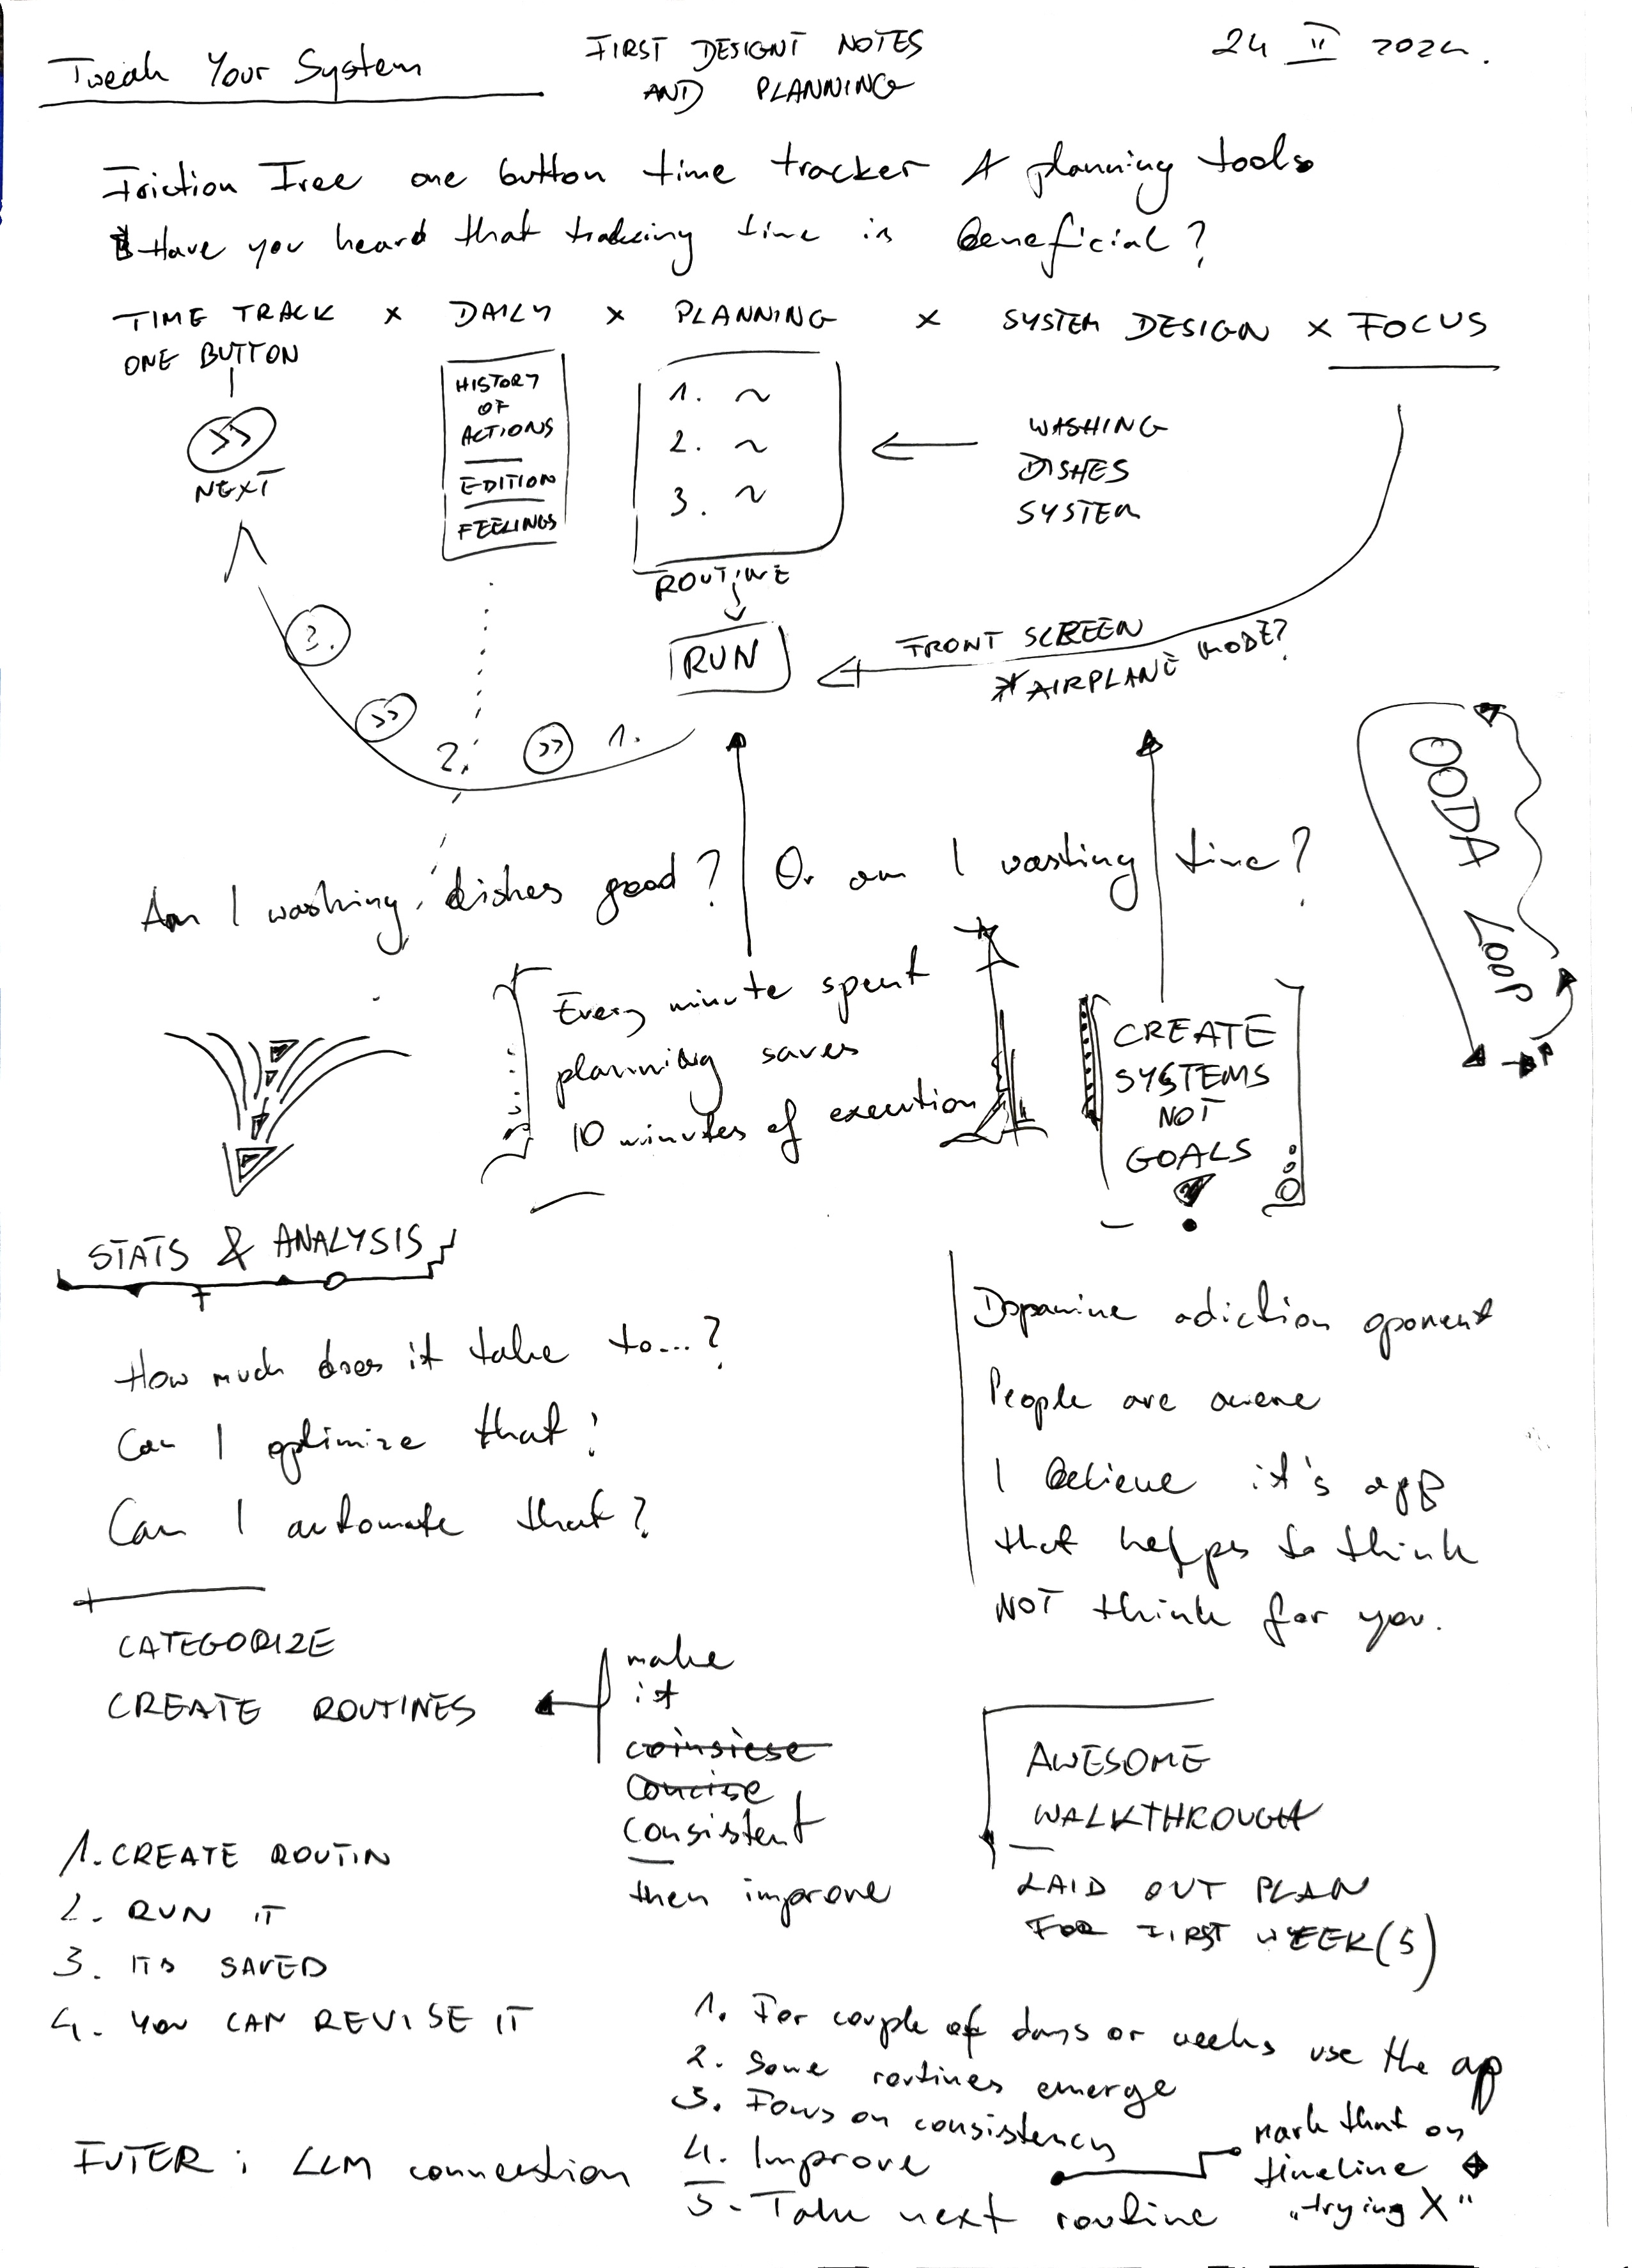 Tweak Your System
FIRST DESIGNT NOTES
AND PLANNING
24 II 2024.
Friction Free one button time tracker & planning tools
Have you heard that tracking time is beneficial?
TIME TRACK x DAILY x PLANNING x SYSTEM DESIGN x FOCUS
ONE BUTTON
>>
NEXT
HISTORY
OF
ACTIONS
EDITION
FEELINGS
1. ~
2. ~
3. ~
ROUTINE
RUN
WASHING
DISHES
SYSTEM
FRONT SCREEN
* AIRPLANE MODE?
3.
>>
2.
>>
1.
OODA LOOP
Am I washing dishes good? Or am I wasting time?
Every minute spent
planning saves
10 minutes of execution
CREATE
SYSTEMS
NOT
GOALS
!
STATS & ANALYSIS
How much does it take to...?
Can I optimize that?
Can I automate that?
Dopamine adiction oponent
People are
I believe it's app
that helps to think
NOT think for you.
CATEGORIZE
CREATE ROUTINES
make
it
coinsiese
Concise
consistent
then improve
AWESOME
WALKTHROUGH
LAID OUT PLAN
FOR FIRST WEEK(S)
1. CREATE ROUTIN
2. RUN IT
3. ITS SAVED
4. YOU CAN REVISE IT
1. For couple of days or weeks use the app
2. Some routines emerge
3. Focus on consistency
4. Improve
5. Take next routine
mark that on
timeline
„trying X"
FUTER: LLM connection